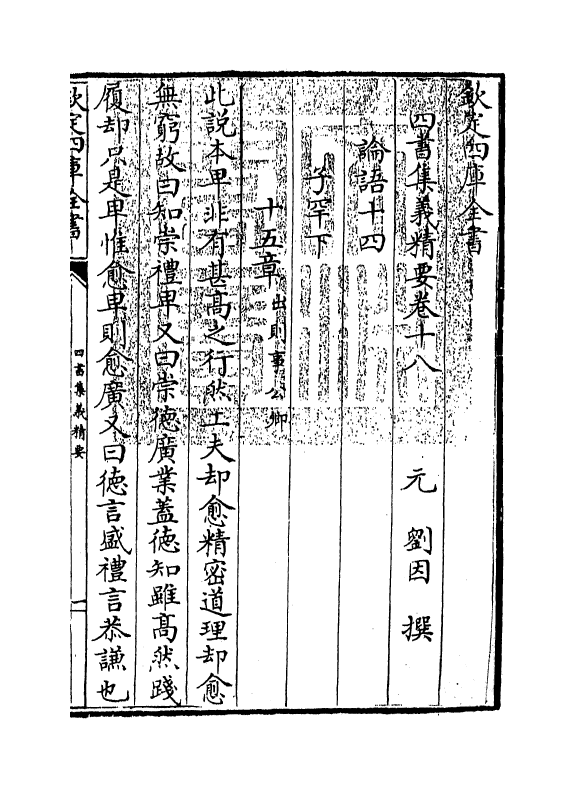 欽定四庫全書
四書集義精要卷十八
元 劉因 撰
論語十四
子罕下
十五章出則事公卿
此說本卑非有甚高之行然工夫却愈精密道理却愈
無窮故曰知崇禮卑又曰崇德廣業蓋德知雖髙然踐
履却只是卑惟愈卑則愈廣又曰德言盛禮言恭謙也
欽定四庫全書
四書集義精要